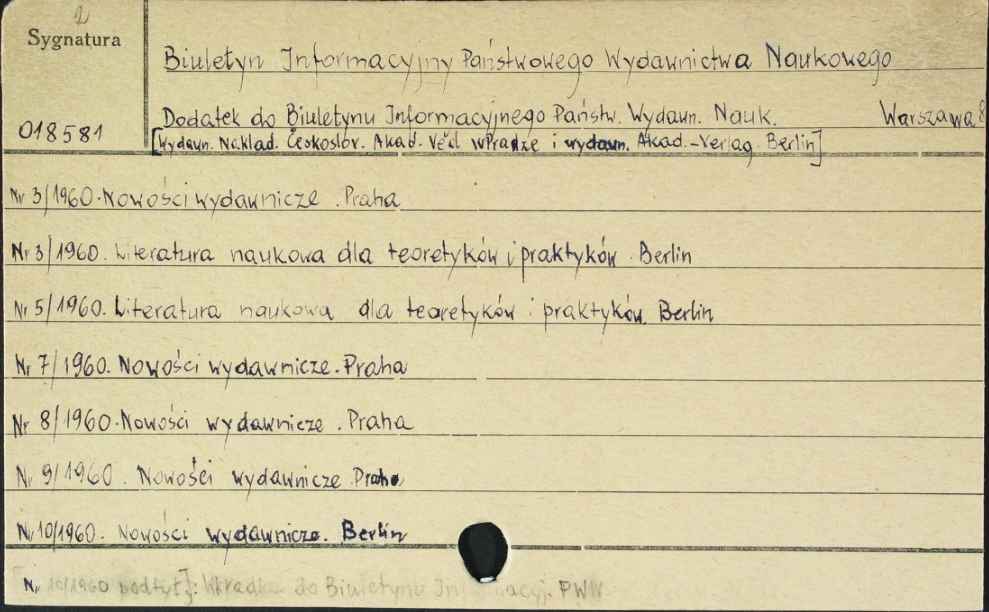 2
Sygnatura
Biuletyn Informacyjny Państwowego Wydawnictwa Naukowego
018581
Dodatek do Biuletynu Informacyjnego Państw. Wydawn. Nauk. Warszawa 8
[Wydawn. Nakład. Českoslov. Akad. Věd w Pradze i wydawn. Akad.-Verlag Berlin]
Nr 3/1960. Nowości wydawnicze. Praha
Nr 3/1960. Literatura naukowa dla teoretyków i praktyków. Berlin
Nr 5/1960. Literatura naukowa dla teoretyków i praktyków. Berlin
Nr 7/1960. Nowości wydawnicze. Praha
Nr 8/1960. Nowości wydawnicze. Praha
Nr 9/1960. Nowości wydawnicze. Praha
Nr 10/1960. Nowości wydawnicze. Berlin
Nr 10/1960 podtyt]: Wkładka do Biuletynu PWN